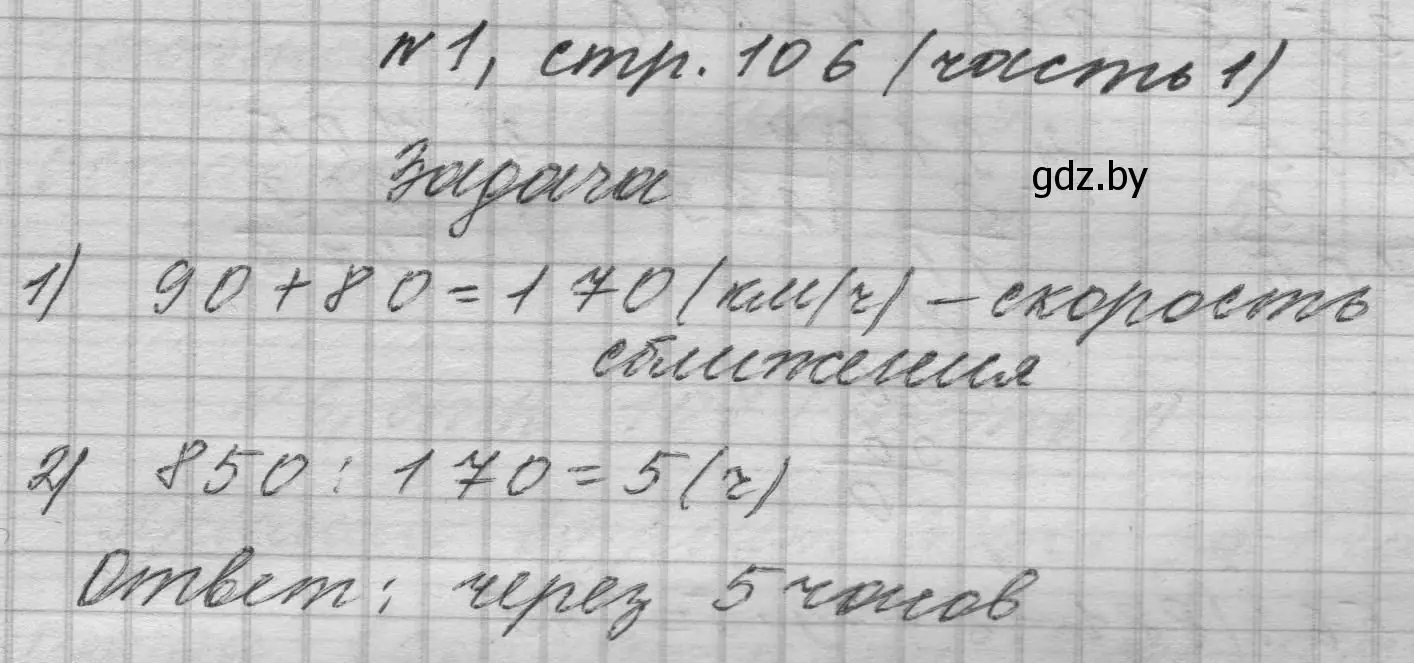 №1, стр. 106 (часть 1)
Задача
gdz.by
1) 90+80=170(км/ч) – скорость
сближения
2) 850:170=5(ч)
Ответ: через 5 часов